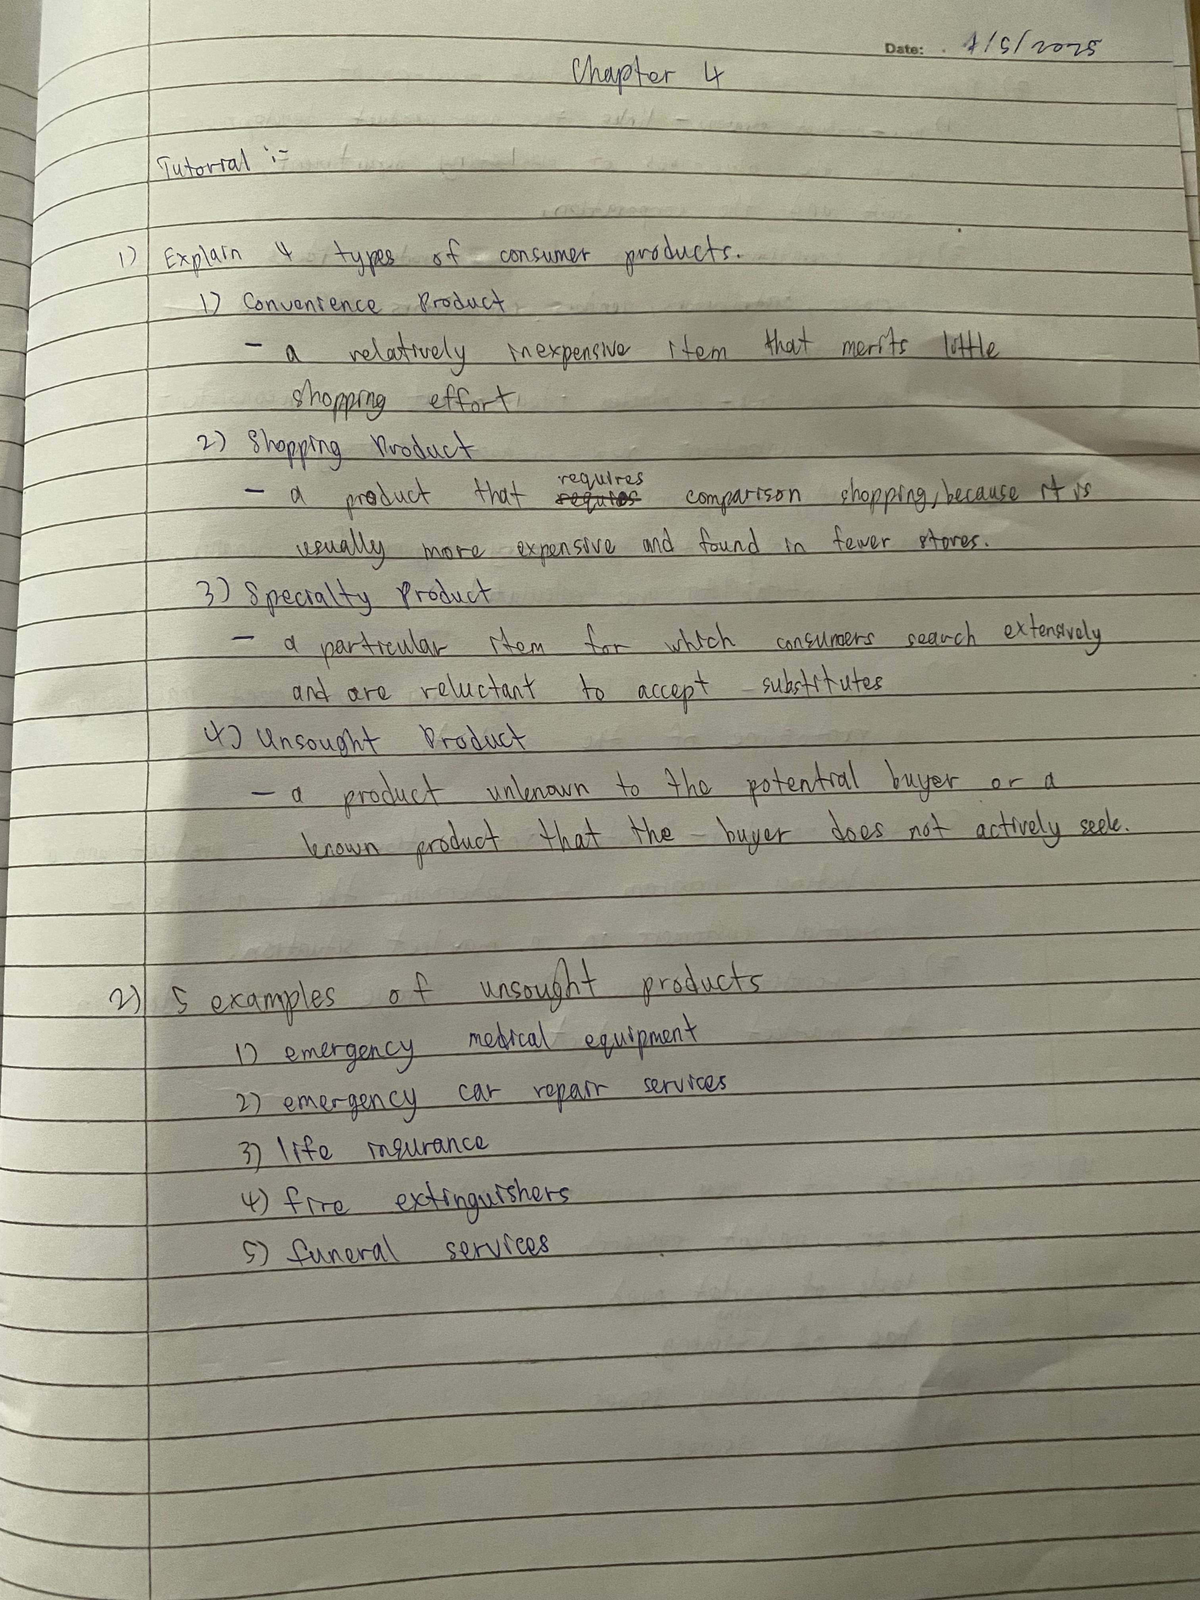 Date: 7/5/2025
Chapter 4
Tutorial :-
1) Explain 4 types of consumer products.
1) Convenience Product
- a relatively inexpensive item that merits little
shopping effort
2) Shopping Product
- a product that requires comparison shopping, because it is
usually more expensive and found in fewer stores.
3) Specialty Product
- a particular item for which consumers search extensively
and are reluctant to accept substitutes
4) Unsought Product
- a product unknown to the potential buyer or a
known product that the buyer does not actively seek.
2) 5 examples of unsought products
1) emergency medical equipment
2) emergency car repair services
3) life insurance
4) fire extinguishers
5) funeral services